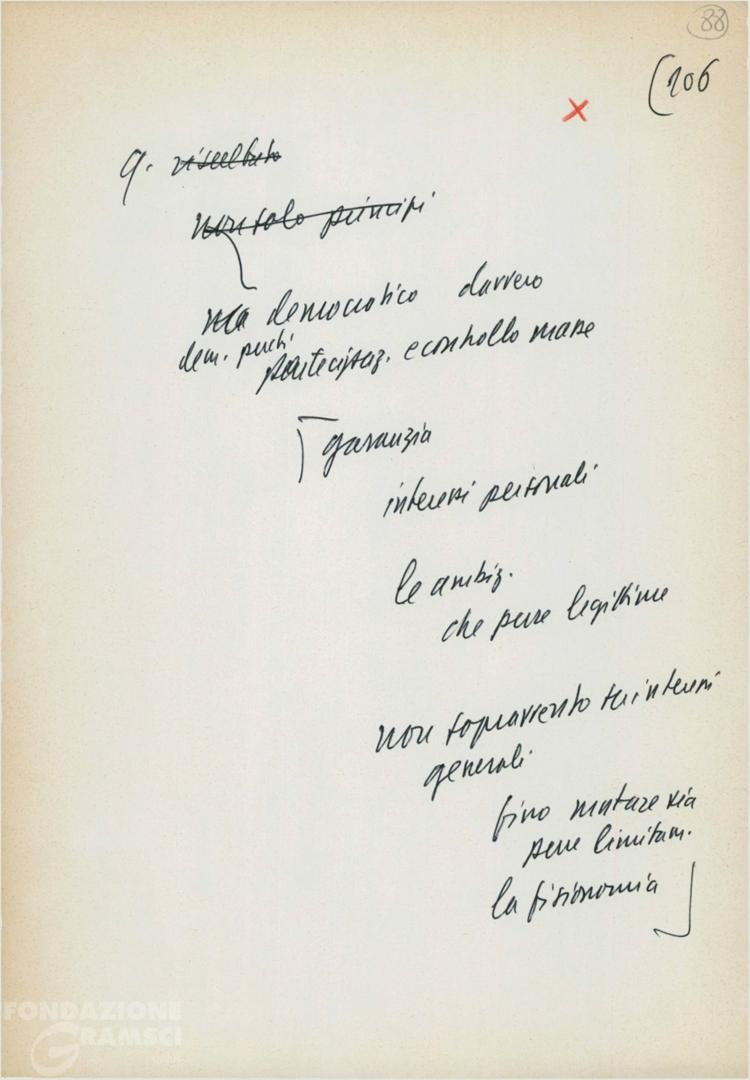 88
(106
x
9. risultato
non solo principi
ma democratico davvero
dem. perché
partecipaz. e controllo masse
garanzia
interessi personali
le ambiz.
che pure legittime
non sopravvento su interessi
generali
fino mutare sia
pure limitam.
la fisionomia
FONDAZIONE
GRAMSCI